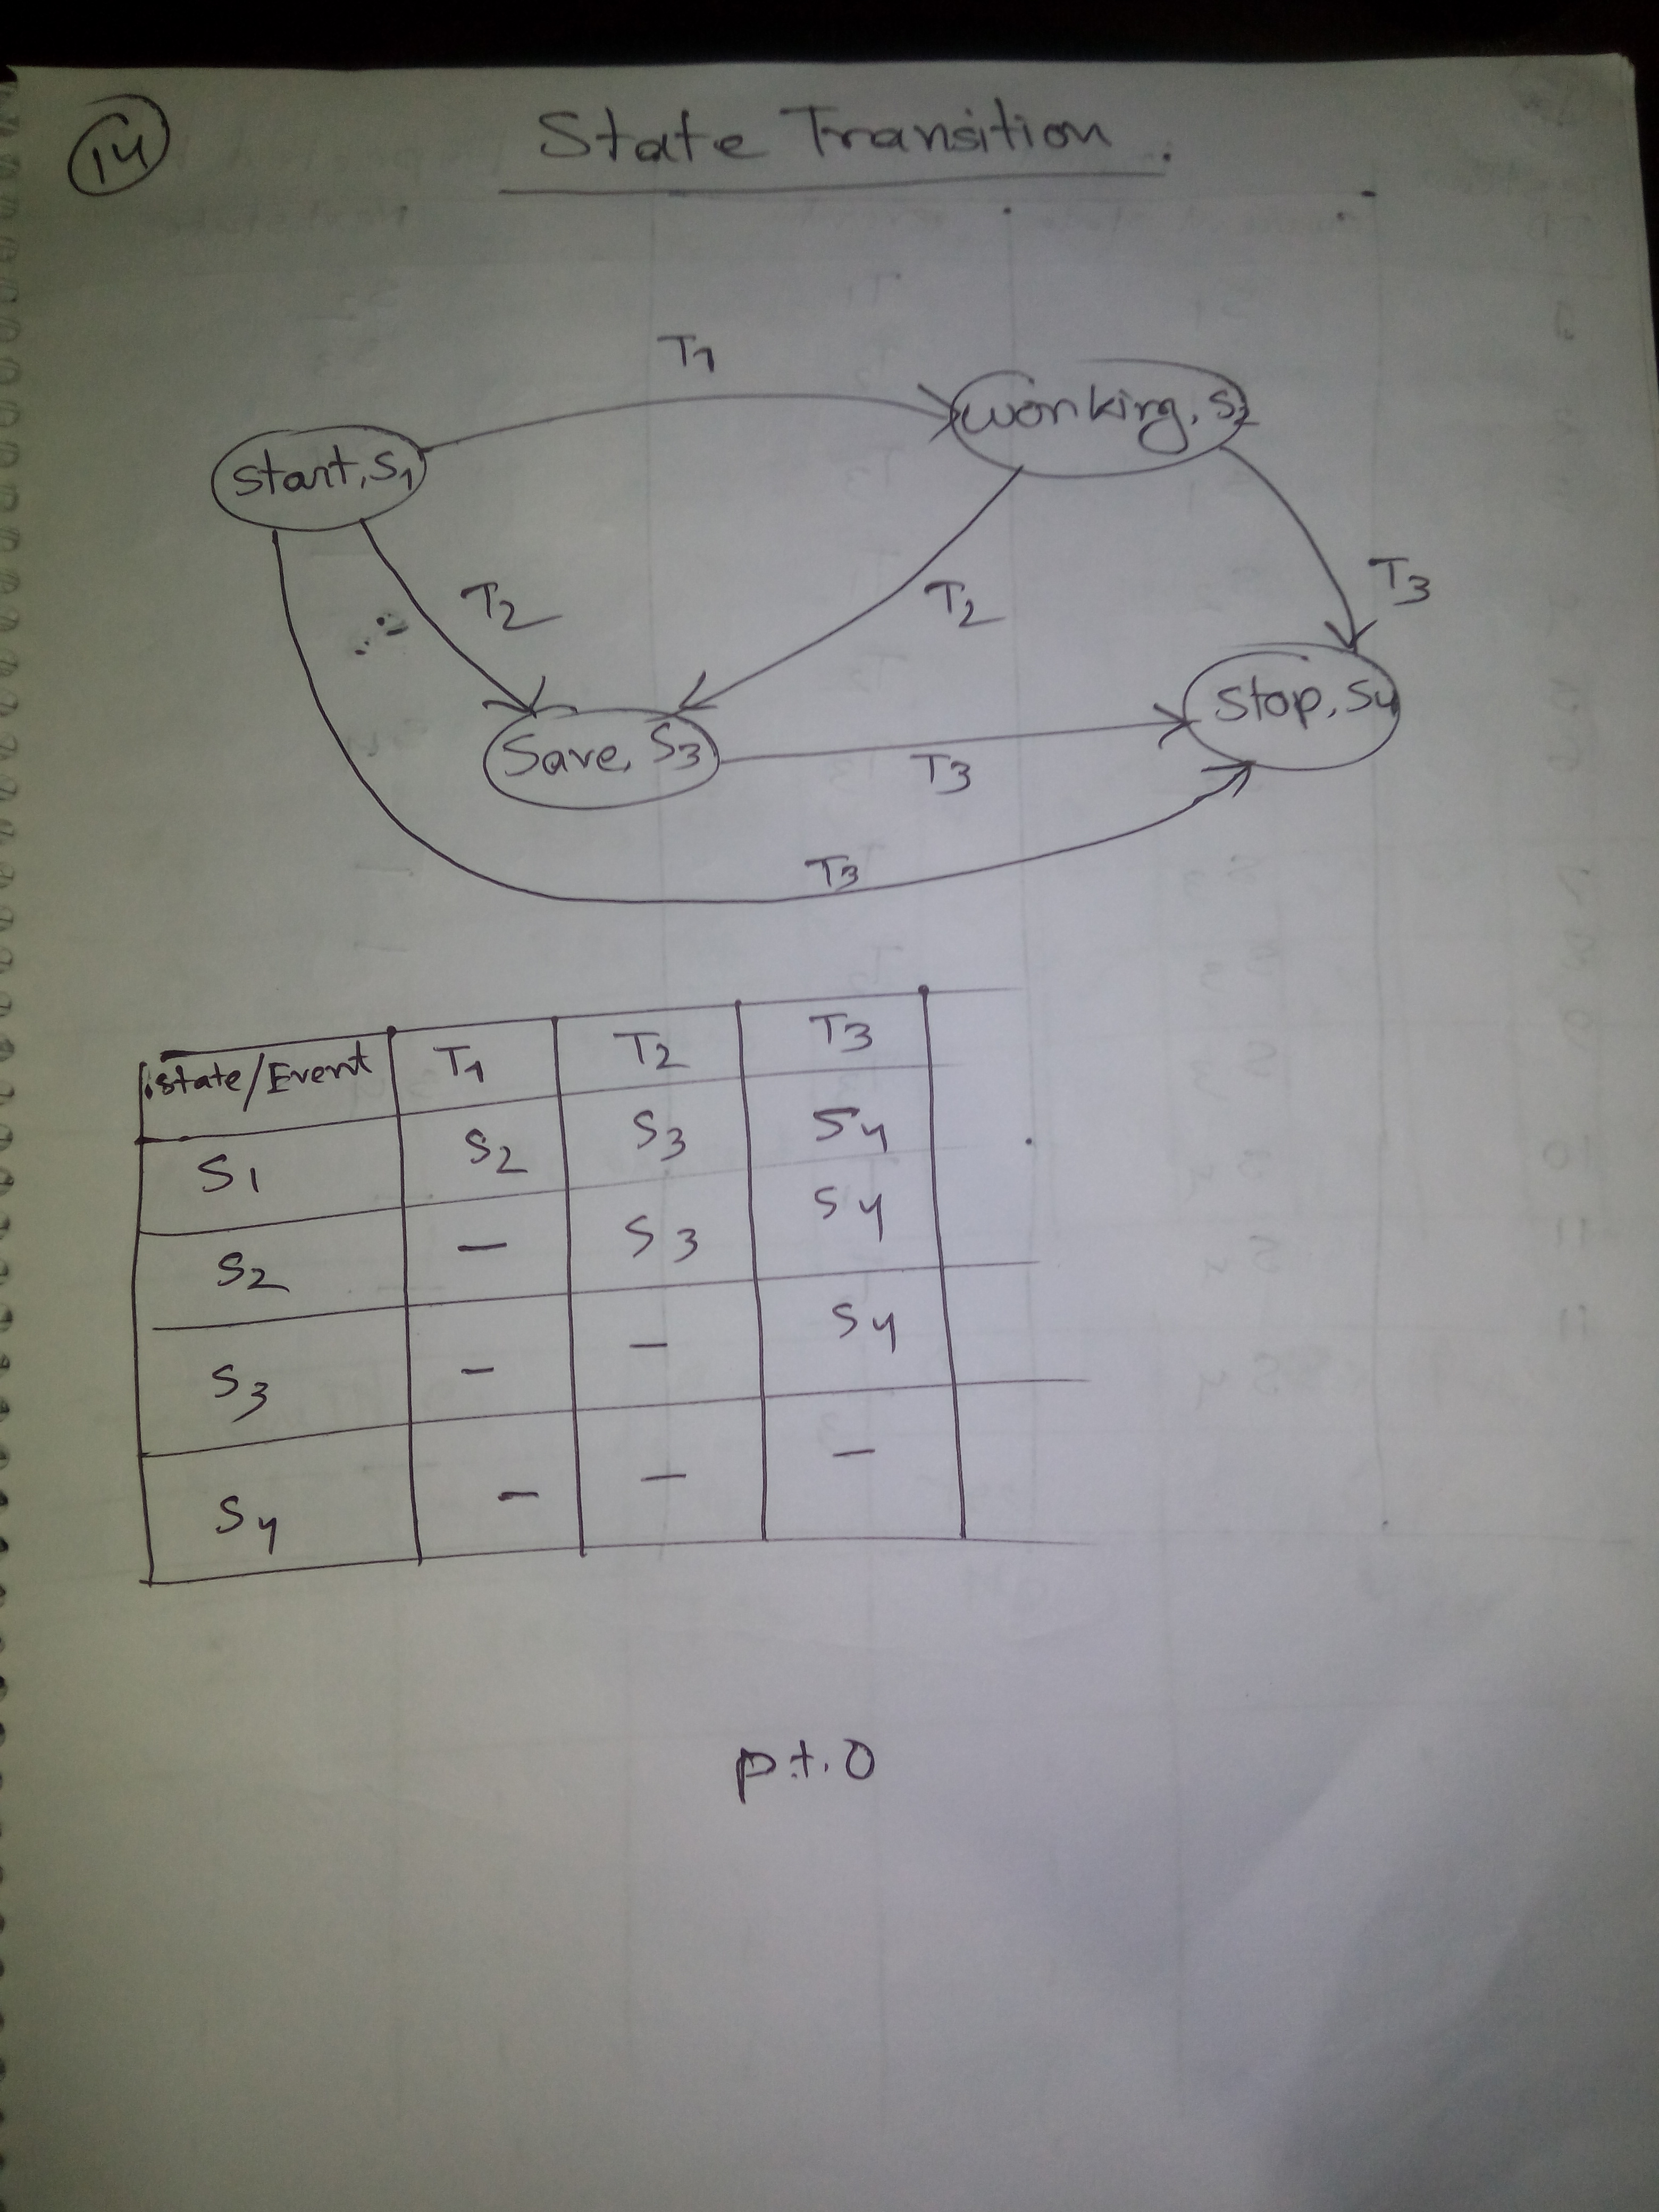 14
State Transition.
T1
working, S2
start, S1
T2
T2
T3
Save, S3
stop, S4
T3
T3
state/Event T1 T2 T3
S1 S2 S3 S4
S2 – S3 S4
S3 – – S4
S4 – – –
p.t.o